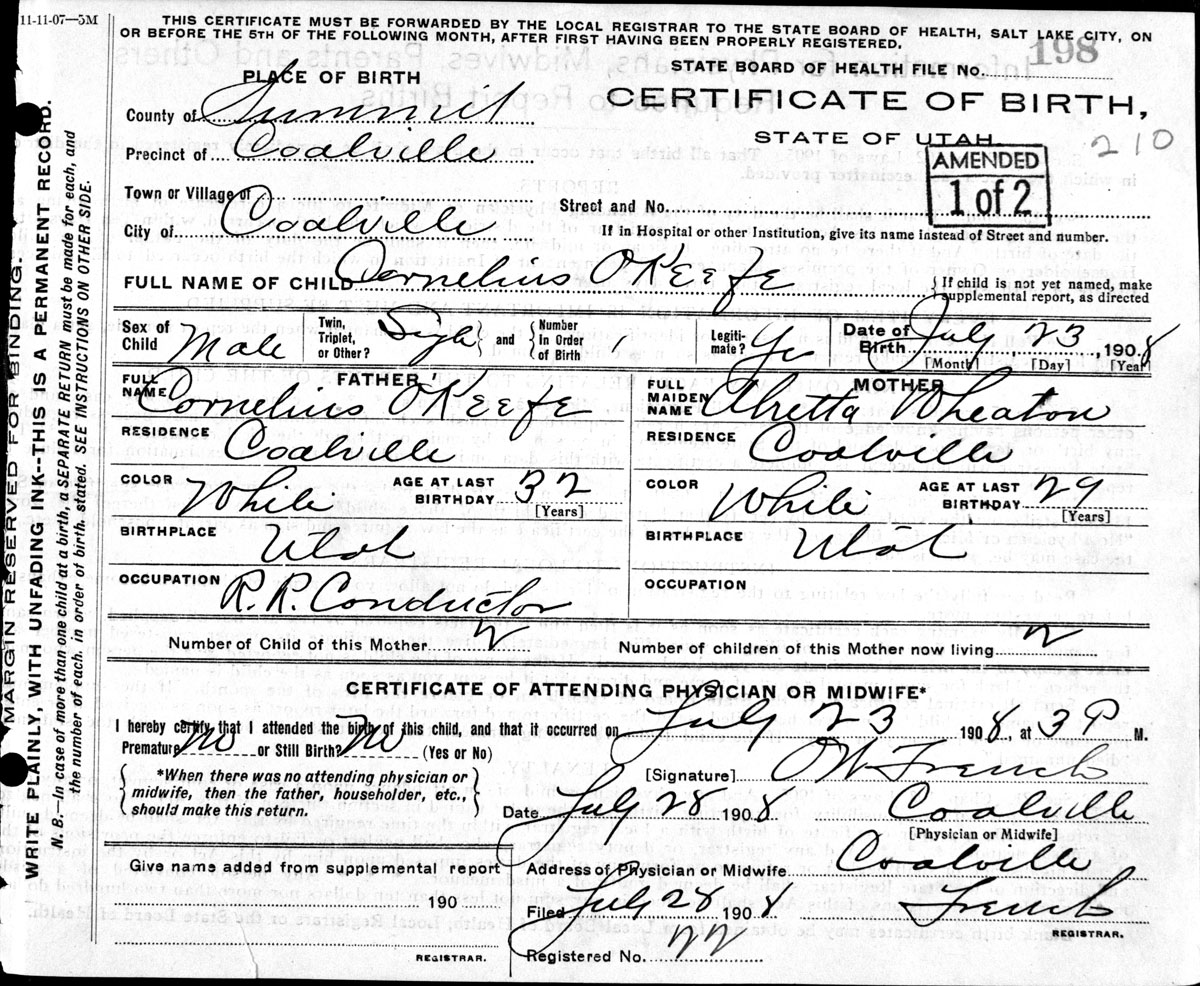 11-11-07—5M
THIS CERTIFICATE MUST BE FORWARDED BY THE LOCAL REGISTRAR TO THE STATE BOARD OF HEALTH, SALT LAKE CITY, ON
OR BEFORE THE 5TH OF THE FOLLOWING MONTH, AFTER FIRST HAVING BEEN PROPERLY REGISTERED.
STATE BOARD OF HEALTH FILE No. 198
PLACE OF BIRTH
CERTIFICATE OF BIRTH,
STATE OF UTAH
210
AMENDED
1 of 2
County of Summit
Precinct of Coalville
Town or Village of
City of Coalville
Street and No.
If in Hospital or other Institution, give its name instead of Street and number.
FULL NAME OF CHILD Cornelius O'Keefe
If child is not yet named, make
supplemental report, as directed
Sex of Child Male
Twin, Triplet, or Other? and Number In Order of Birth
Legitimate?
Date of Birth July 23, 1908
[Month] [Day] [Year]
FATHER
FULL NAME Cornelius O'Keefe
RESIDENCE Coalville
COLOR White
AGE AT LAST BIRTHDAY 32
[Years]
BIRTHPLACE Utah
OCCUPATION R.R. Conductor
MOTHER
FULL MAIDEN NAME Wheaton
RESIDENCE Coalville
COLOR White
AGE AT LAST BIRTHDAY 29
[Years]
BIRTHPLACE Utah
OCCUPATION
Number of Child of this Mother 2
Number of children of this Mother now living 2
CERTIFICATE OF ATTENDING PHYSICIAN OR MIDWIFE*
I hereby certify that I attended the birth of this child, and that it occurred on July 23 1908, at 3 P M.
Premature No or Still Birth? No (Yes or No)
*When there was no attending physician or
midwife, then the father, householder, etc.,
should make this return.
[Signature] French
Date July 28 1908 Coalville
[Physician or Midwife]
Given name added from supplemental report
190
REGISTRAR.
Address of Physician or Midwife Coalville
Filed July 28 1908 French
REGISTRAR.
Registered No. 22
MARGIN RESERVED FOR BINDING
WRITE PLAINLY, WITH UNFADING INK--THIS IS A PERMANENT RECORD.
N. B.—In case of more than one child at a birth, a SEPARATE RETURN must be made for each, and
the number of each, in order of birth, stated. SEE INSTRUCTIONS ON OTHER SIDE.